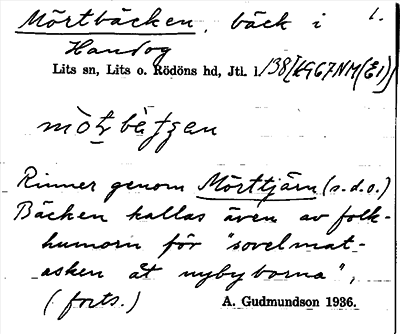 Mörtbäcken, bäck i 1.
Handog
Lits sn, Lits o. Rödöns hd, Jtl. l.
mòt̠bäʃʒen
Rinner genom Mörttjärn (s.d.o.)
Bäcken kallas även av folk-
humorn för "sovelmat-
asken åt nybyborna",
(forts.)
A. Gudmundson 1936.